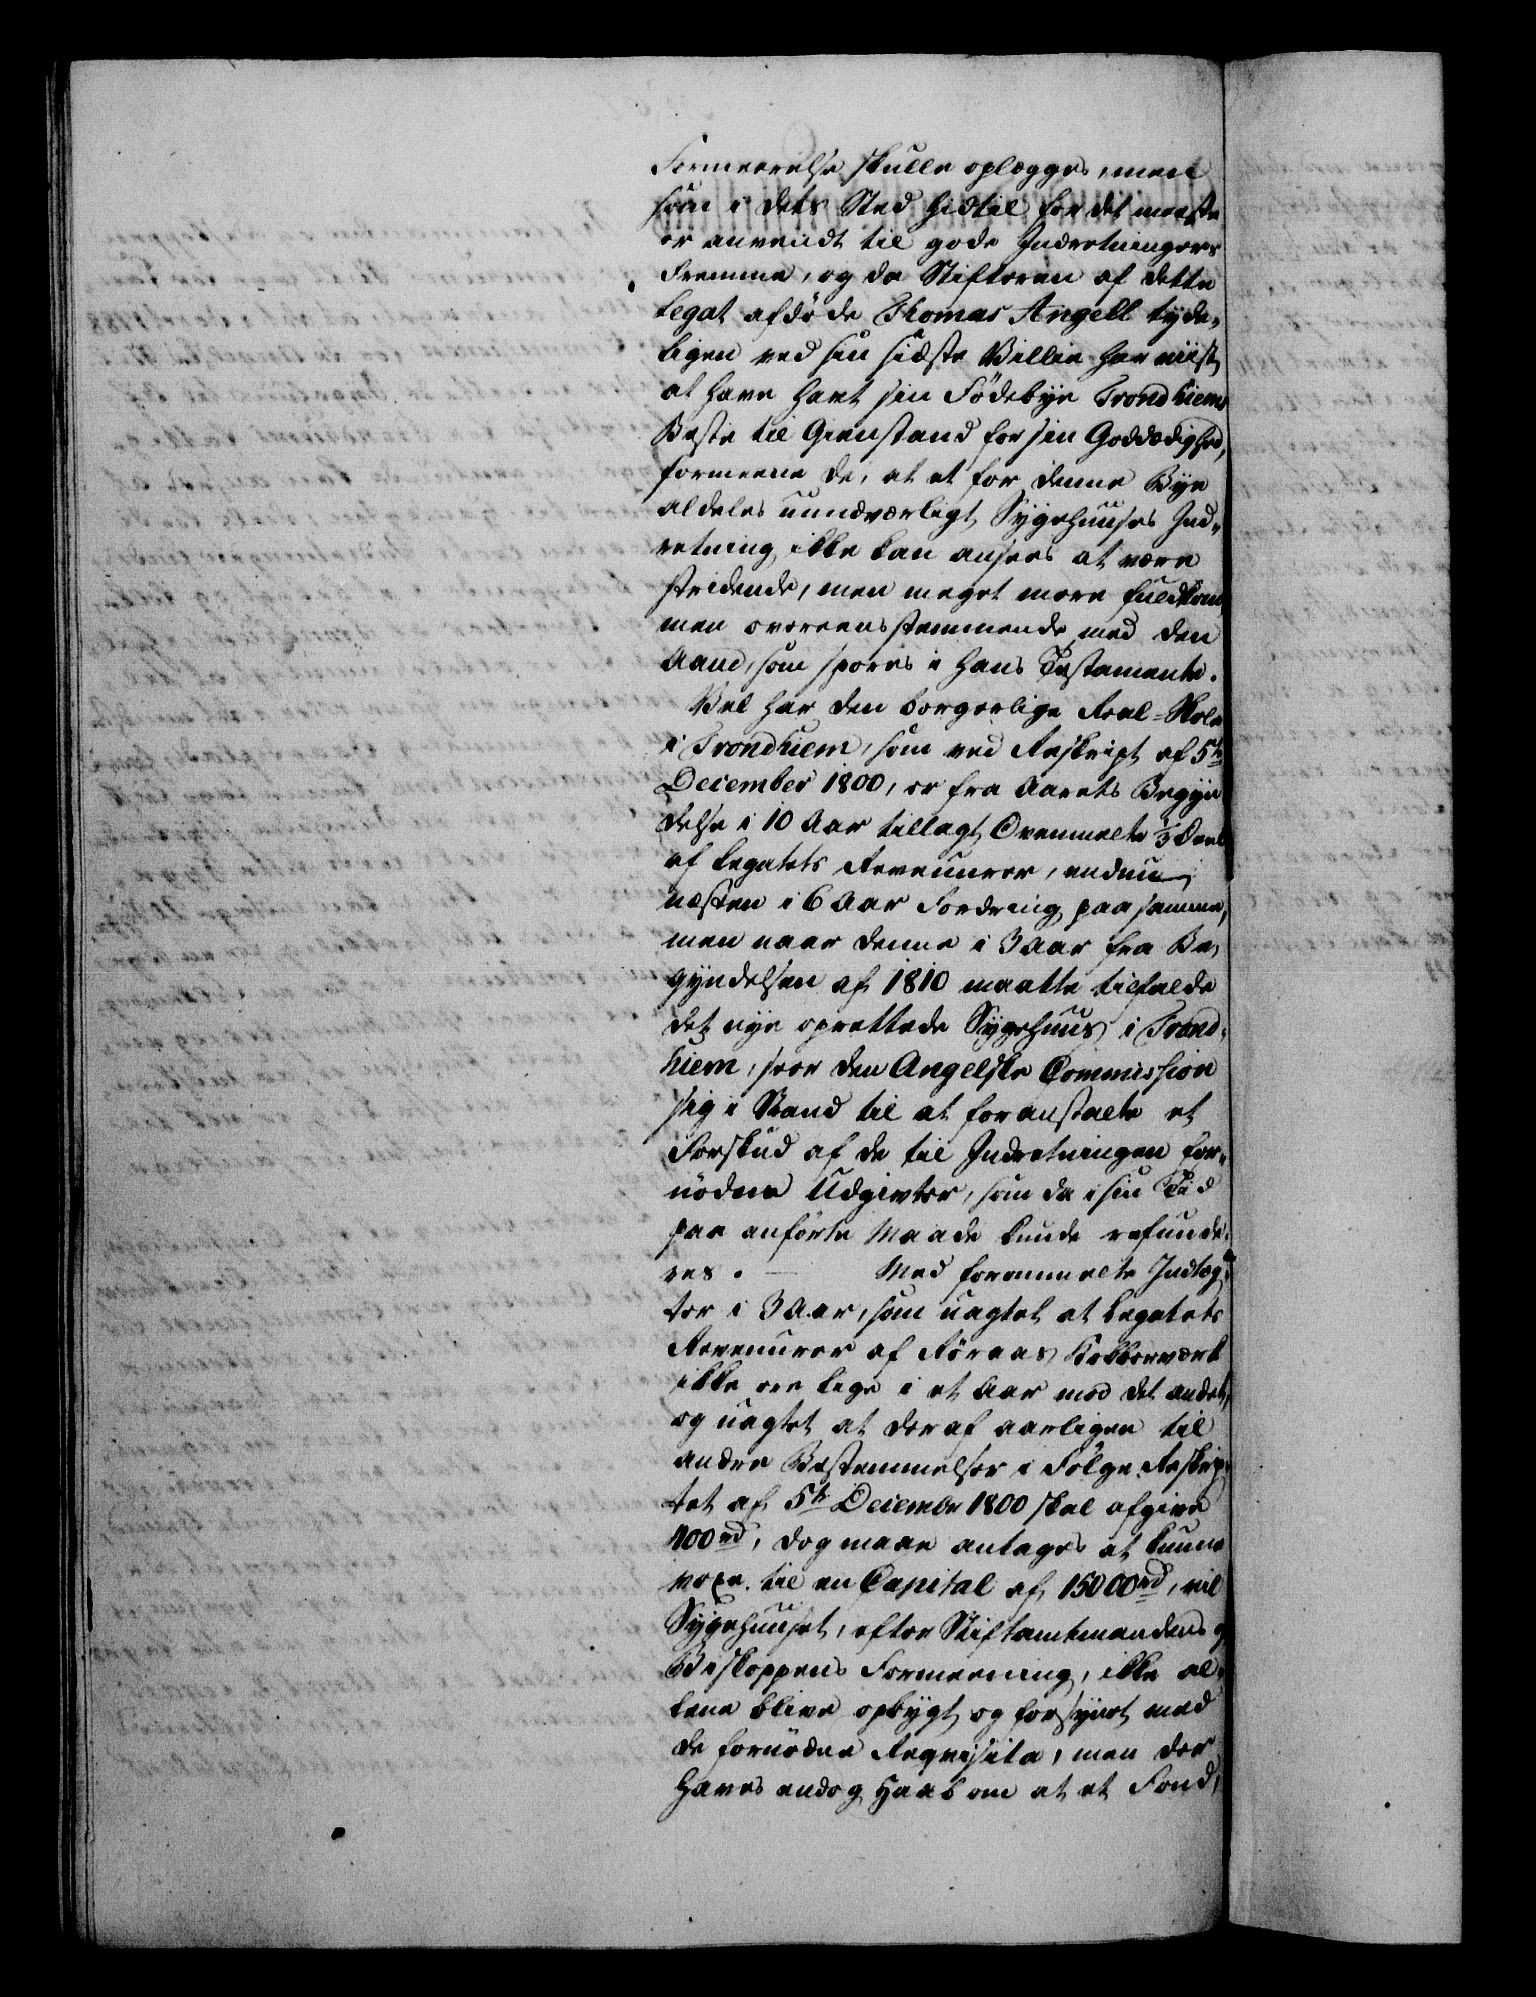 Formeerelse skulle oplægges, men
som i dets Sted hidtil for det meeste
er anvendt til gode Indretningers
Fremme, og da Stifteren af dette
Legat afdøde Thomas Angell tyde„
ligen ved sin sidste Villie har viist
at have havt sin Fødebye Trondhiems
Beste til Gienstand for sin Goddædighed,
formeene de, at et for denne Bye
aldeles uundværligt Sygehuuses Ind„
retning ikke kan ansees at være
stridende, men meget mere fuldkom„
men overeensstemmende med den
Aand, som spores i hans Testamente.
Vel har den borgerlige Real-Skole
i Trondhiem, som ved Reskript af 5te
December 1800, er fra Aarets Begyn
delse i 10 Aar tillagt Ovenmelte 1/3 Deel
af Legatets Revenuer, endnu
næsten i 6 Aar Fordring paa samme,
men naar denne i 3 Aar fra Be„
gyndelsen af 1810 maatte tilfalde
det nye oprettede Sygehuus i Trond„
hiem, seer den Angelske Commission
sig i Stand til at foranstalte et
Forskud af de til Indretningen for„
nødne Udgivter, som da i sin Tid
paa anførte Maade kunde refunde„
res. — Med forommelte Indtæg„
ter i 3 Aar, som uagtet at Legatets
Revenuer af Røraas Kobberværk
ikke ere lige i et Aar mod det andet,
og uagtet at deraf aarligen til
andre Bestemmelser i Følge Reskrip„
tet af 5te December 1800 skal afgives
400 rd, dog maae antages at kunne
voxe til en Capital af 15000 rd, vil
Sygehuuset, efter Stiftamtmandens og
Biskoppens Formeening, ikke al„
lene blive opbygt og forsynet med
de fornødne Reqvisita, men der
haves endog Haab om at et Fond,